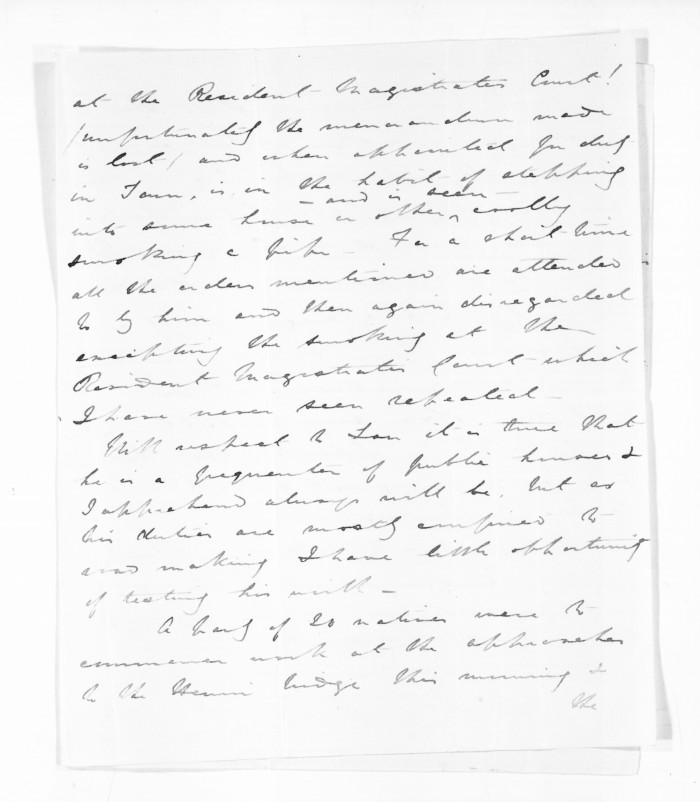 at the Resident Magistrates Court!
(unfortunately the memorandum made
is lost) and when appointed for duty
in Town, is in the habit of stepping
- and is seen -
into some house or other, coolly
smoking a pipe - For a short time
all the orders mentioned are attended
to by him and then again disregarded
excepting the smoking at the
Resident Magistrates Court which
I have never seen repeated -
With respect to it is true that
he is a frequenter of public houses &
I apprehend always will be, but as
his duties are mostly confined to
road making I have little opportunity
of testing his -
A party of 20 natives were to
commence work at the approaches
to the bridge this morning &
the